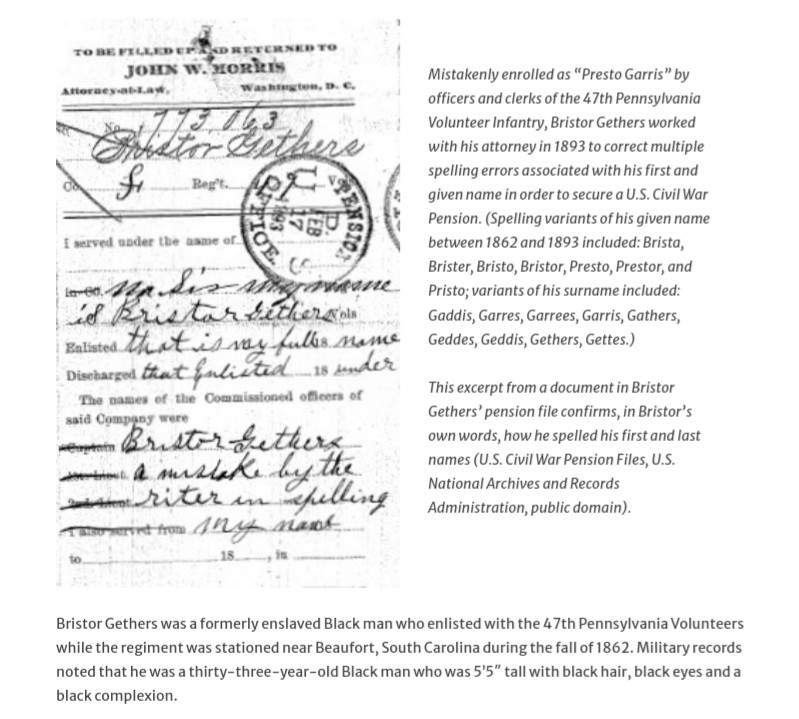 TO BE FILLED UP AND RETURNED TO
JOHN W. MORRIS
Attorney-at-Law, Washington, D. C.
No. 773063
Bristor Gethers
Co. Reg't. V
PENSION OFFICE
FEB 17 1893
I served under the name of
in Co. No Sir my name
is Bristor Gethers Vols
Enlisted that is my full name
Discharged that Enlisted 18 under
The names of the Commissioned officers of
said Company were
Captain Bristor Gethers
a mistake by the
riter in spelling
I also served from My name
to 18 , in
Mistakenly enrolled as “Presto Garris” by
officers and clerks of the 47th Pennsylvania
Volunteer Infantry, Bristor Gethers worked
with his attorney in 1893 to correct multiple
spelling errors associated with his first and
given name in order to secure a U.S. Civil War
Pension. (Spelling variants of his given name
between 1862 and 1893 included: Brista,
Brister, Bristo, Bristor, Presto, Prestor, and
Pristo; variants of his surname included:
Gaddis, Garres, Garrees, Garris, Gathers,
Geddes, Geddis, Gethers, Gettes.)
This excerpt from a document in Bristor
Gethers’ pension file confirms, in Bristor’s
own words, how he spelled his first and last
names (U.S. Civil War Pension Files, U.S.
National Archives and Records
Administration, public domain).
Bristor Gethers was a formerly enslaved Black man who enlisted with the 47th Pennsylvania Volunteers
while the regiment was stationed near Beaufort, South Carolina during the fall of 1862. Military records
noted that he was a thirty-three-year-old Black man who was 5’5″ tall with black hair, black eyes and a
black complexion.